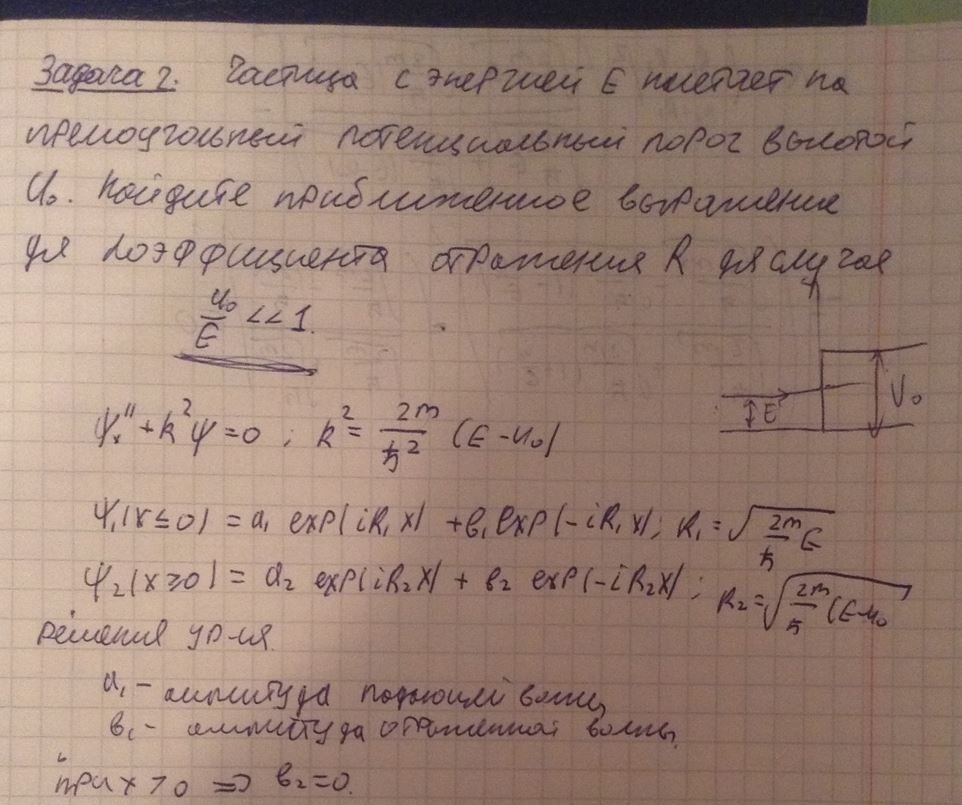 Задача 2. Частица с энергией E налетает на
прямоугольный потенциальный порог высотой
U₀. Найдите приближенное выражение
для коэффициента отражения R для случая
U₀/E << 1.
E U₀
ψₓ'' + k²ψ = 0 ; k² = 2m/ħ² (E - U₀)
ψ₁(x ≤ 0) = a₁ exp(ik₁x) + b₁ exp(-ik₁x); k₁ = √(2m/ħ E
ψ₂(x ≥ 0) = a₂ exp(ik₂x) + b₂ exp(-ik₂x); k₂ = √(2m/ħ (E-U₀
решения ур-ия.
a₁ - амплитуда падающей волны
b₁ - амплитуда отраженной волны.
при x > 0 => b₂ = 0.